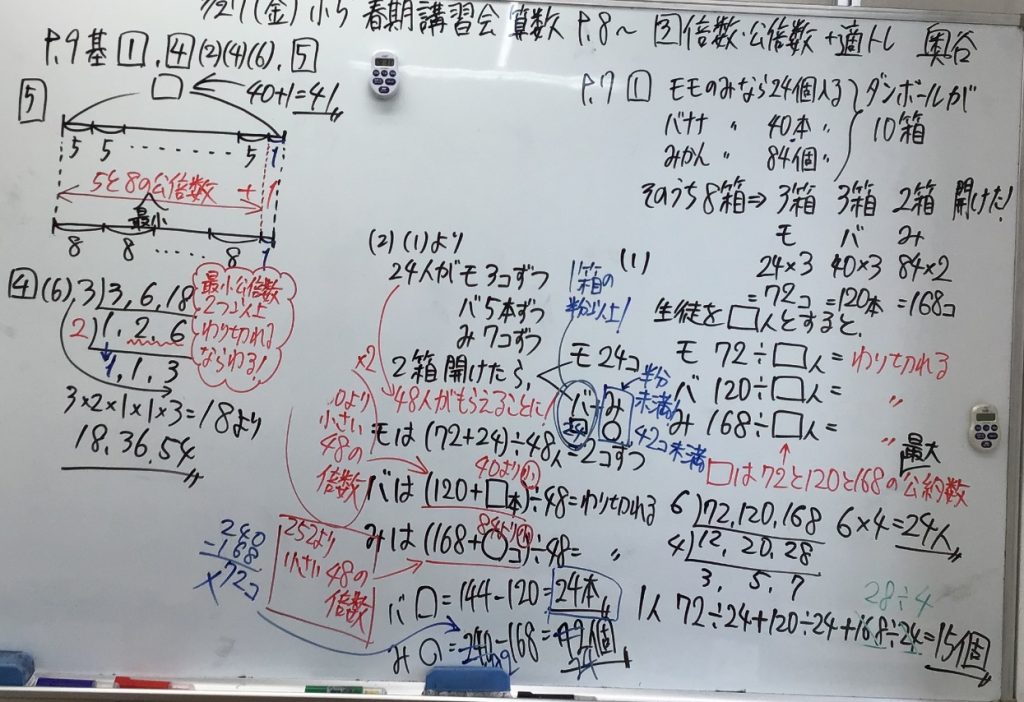 3/27(金) 小5 春期講習会 算数 P.8〜 ②倍数・公倍数 +適トレ 奥谷
P.9 基 1, 4 (2)(4)(6), 5
5
□ ← 40+1=41
5 5 ‥‥‥ 5 1
5と8の公倍数 + 1
最小
8 8 ‥‥ 8 1
4 (6), 3) 3, 6, 18
2) 1, 2, 6
1, 1, 3
最小公倍数
2つ以上
わり切れる
ならわる!
3×2×1×1×3=18より
18, 36, 54
(2) (1)より
24人がモ3コずつ
バ5本ずつ
み7コずつ
2箱開けたら、
×2
48人がもらえることに!
モは (72+24)÷48人=2コずつ
40より小
バは (120+□本)÷48=わりきれる
84より小
みは (168+○コ)÷48= 〃
より
小さい
48の
倍数
252より
小さい48の
倍数
240
-168
72コ
バ □=144-120=24本
み ○= -168= 個
P.7 1 モモのみなら24個入る
バナナ 〃 40本 〃
みかん 〃 84個 〃
ダンボールが
10箱
そのうち8箱⇒ 3箱 3箱 2箱 開けた!
モ バ み
24×3 40×3 84×2
=72コ =120本 =168コ
(1)
生徒を□人とすると、
モ 72÷□人=わりきれる
バ 120÷□人= 〃
み 168÷□人= 〃
最大
□は72と120と168の公約数
1箱の
半分以上!
モ 24コ
バ み
半分
未満
42コ未満
6) 72, 120, 168
4) 12, 20, 28
3, 5, 7
6×4=24人
28÷4
1人 72÷24+120÷24+168÷24=15個